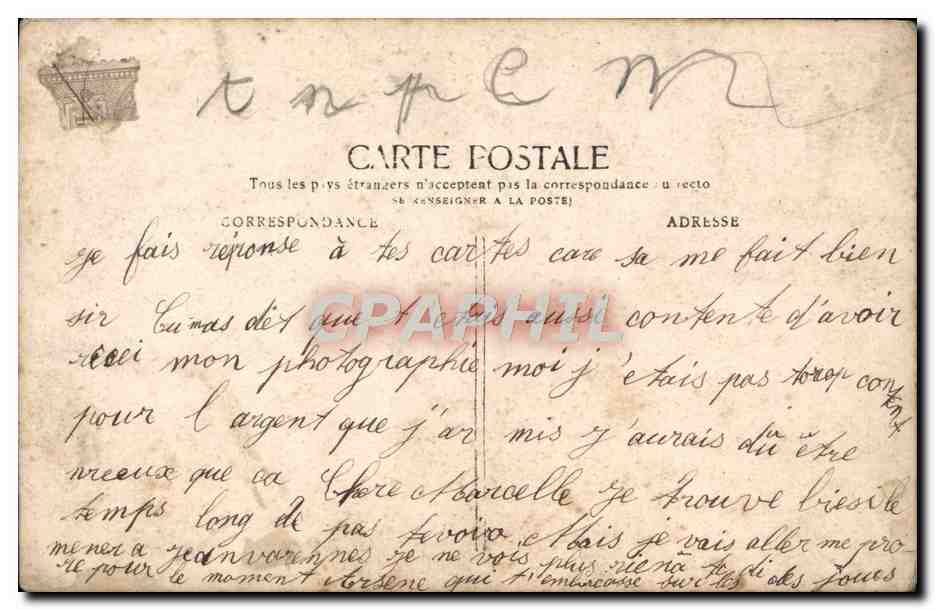 CARTE POSTALE
Tous les pays étrangers n'acceptent pas la correspondance au recto
(SE RENSEIGNER A LA POSTE)
CORRESPONDANCE ADRESSE
CPAPHIL
Je fais réponse à tes cartes care sa me fait bien
sir tu mas dèt que t etais aussi contente d'avoir
recei mon photographie moi j'etais pas torop content
pour l argent que j'ai mis j'aurais du être
mieeux que ca Chere Marcelle je trouve bies le
temps long de pas tevoire Mais je vais aller me pro-
mener a jeanvarennes je ne vois plus rien à te di
re pour le moment Arsene qui t'embrasse sur les des joues